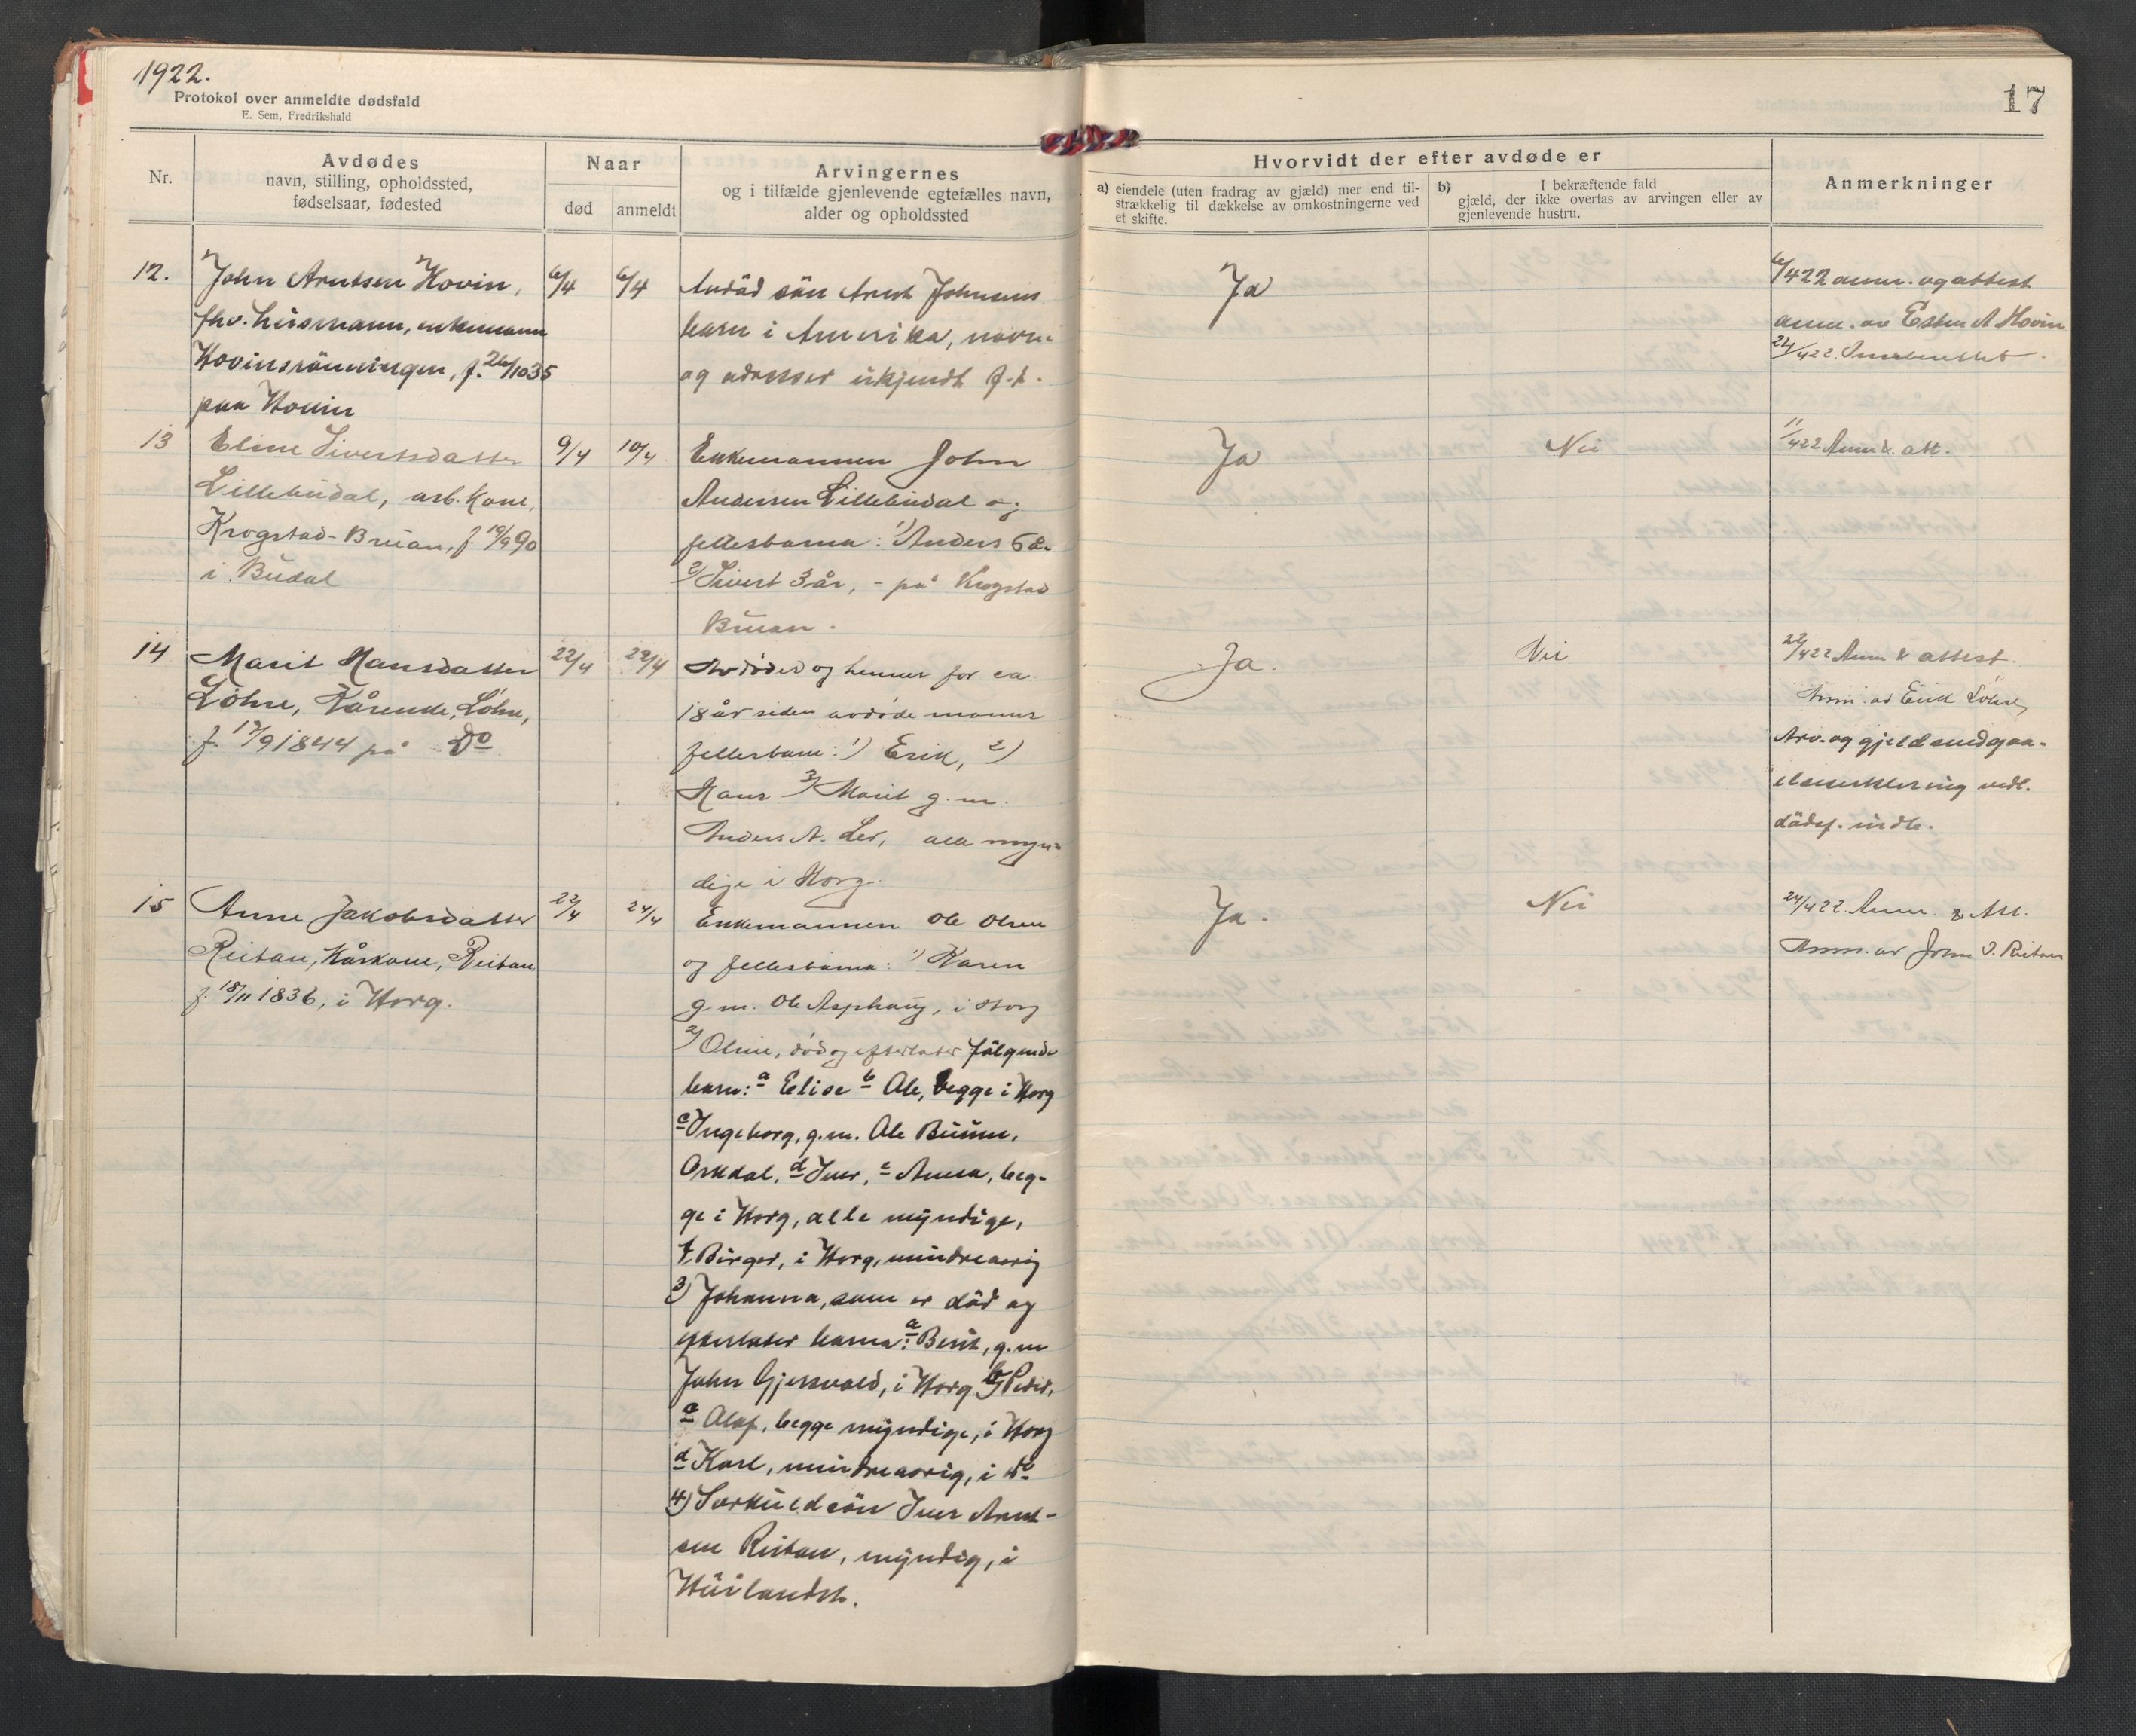 1922.
Protokol over anmeldte dødsfald
E. Sem, Fredrikshald
17
Nr.
Avdødes
navn, stilling, opholdssted,
fødselsaar, fødested
Naar
død
anmeldt
Arvingernes
og i tilfælde gjenlevende egtefælles navn,
alder og opholdssted
Hvorvidt der efter avdøde er
a) eiendele (uten fradrag av gjæld) mer end til-
strækkelig til dækkelse av omkostningerne ved
et skifte.
b) I bekræftende fald
gjæld, der ikke overtas av arvingen eller av
gjenlevende hustru.
Anmerkninger
12.
John Arntsen Hovin,
fhv. husmann, enkemann
Hovinsrönningen, f. 26/10 35
paa Hovin
6/4
6/4
Avdöd sön Arnt Johnsens
barn i Amerika, navn
og adresser ukjendt f.t.
Ja
6/4 22 anm. og attest
anm. av Esten A Hovin
22/4 22.
13
Eline Sivertsdatter
Lillebudal, arb. kone,
Krogstad-Bruan, f. 19/9 90
i Budal
9/4
10/4
Enkemannen John
Andersen Lillebudal og
fellesbarna: 1) Anders 6 år
2) Sivert 3 år, - på Krogstad
Bruan.
Ja
Nei
11/4 22 Anm & att.
14
Marit Hansdatter
Löhre, Kårenke, Löhre,
f. 17/9 1844 på Do
22/4
22/4
Avdödes og hennes for ca.
18 år siden avdöde manns
fellesbarn: 1) Erik, 2)
Hans 3) Marit g. m.
Anders A. Ler, alle myn-
dige i Horg.
Ja.
Nei
22/4 22 Anm & attest.
Anm. av Erik Löhre
Arv- og gjeldsvedgaa-
elseserklering vedl.
dödsf. indb.
15
Anne Jakobsdatter
Reitan, Kårkone, Reitan
f. 18/11 1836, i Horg.
22/4
24/4
Enkemannen Ole Olsen
og fellesbarna: 1) Karen
g. m. Ole Asphaug, i Horg
2) Oline, död og efterlater fölgende
barn: a Elise b Ole, begge i Horg
c Ingeborg, g. m. Ole Buum,
Orkdal, d Iver, e Anna, beg-
ge i Horg, alle myndige,
f. Birger, i Horg, mindreaarig
3) Johanna, som er död og
efterlater barna: a Berit, g. m
John Gjersvold, i Horg b) Peder,
c Olaf, begge myndige, i Horg
d Karl, mindreaarig, i do
4) Særkuldsön Iver Arnt-
sen Reitan, myndig, i
Höilandet.
Ja.
Nei
24/4 22. Anm. & Att.
Anm. av John O. Reitan